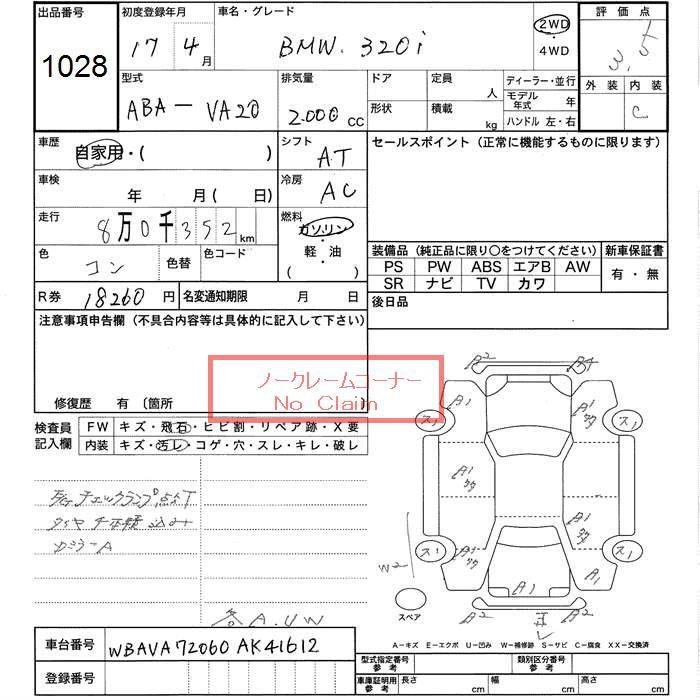 出品番号 初度登録年月 車名・グレード 2WD・4WD 評価点
1028 17 4月 BMW. 320i 3.5
外装 内装
C
型式 排気量 ドア 定員 人 ディーラー・並行
ABA－VA20 2.000 cc 形状 積載 kg モデル年式 年
ハンドル 左・右
車歴 自家用・( ) シフト AT セールスポイント（正常に機能するものに限ります）
車検 年 月(日) 冷房 AC
走行 8万0千352km 燃料 ガソリン・軽・油( )
色 コン 色替 色コード
装備品（純正品に限り○をつけてください） 新車保証書
PS PW ABS エアB AW 有・無
SR ナビ TV カワ
R券 18260円 名変通知期限 月 日 後日品
注意事項申告欄（不具合内容等は具体的に記入して下さい）
ノークレームコーナー
No Claim
修復歴 有〔箇所
検査員記入欄 FW キズ・飛石・ヒビ割・リペア跡・X要
内装 キズ・汚レ・コゲ・穴・スレ・キレ・破レ
チェックランプ点灯
A.UW
A2 A4
A1 A1
ス1 ス1
A1
A1
ス1 ス1
A1 A1 A1
W2
スペア A2 A2
A－キズ E－エクボ U－凹み W－補修跡 S－サビ C－腐食 XX－交換済
車台番号 WBAVA72060AK41612
登録番号
型式指定番号参考 類別区分番号参考
車庫証明用参考 長さ cm 幅 cm 高さ cm